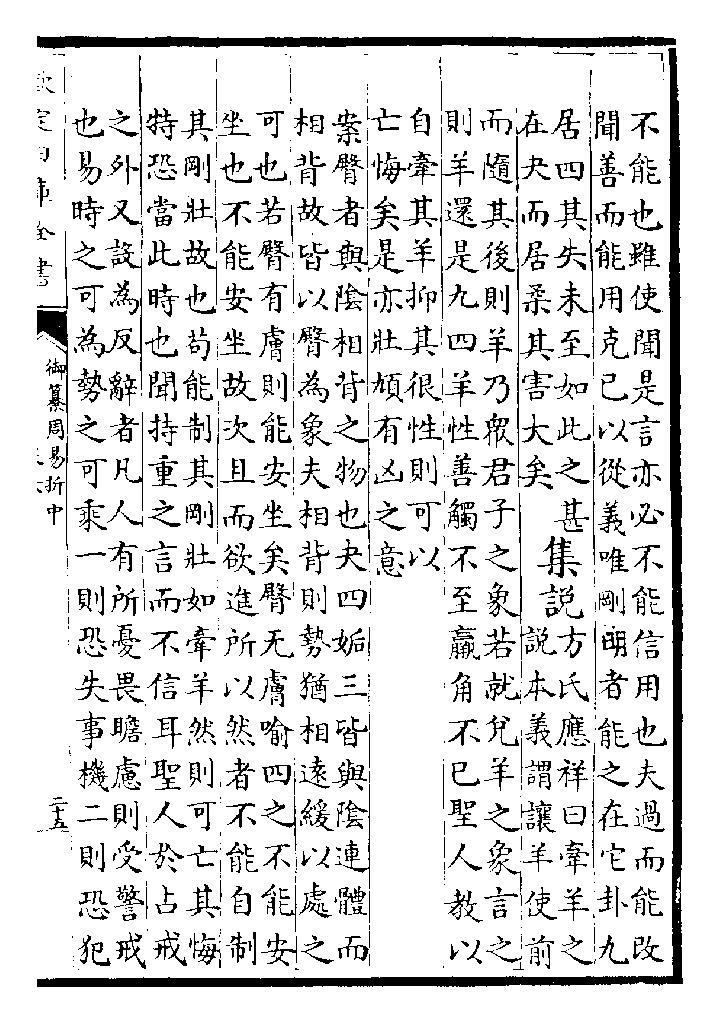 不能也雖使聞是言亦必不能信用也夫過而能改
聞善而能用克己以從義唯剛明者能之在它卦九
居四其失未至如此之甚
在夬而居柔其害大矣
集說
方氏應祥曰牽羊之
說本義謂讓羊使前
而隨其後則羊乃眾君子之象若就兌羊之象言之
則羊還是九四羊性善觸不至羸角不已聖人教以
自牽其羊抑其很性則可以
亡悔矣是亦壯頄有凶之意
案臀者與陰相背之物也夬四姤三皆與陰連體而
相背故皆以臀為象夫相背則勢猶相遠緩以處之
可也若臀有膚則能安坐矣臀无膚喻四之不能安
坐也不能安坐故次且而欲進所以然者不能自制
其剛壯故也苟能制其剛壯如牽羊然則可亡其悔
特恐當此時也聞持重之言而不信耳聖人於占戒
之外又設為反辭者凡人有所憂畏瞻慮則受警戒
也易時之可為勢之可乘一則恐失事機二則恐犯
欽定四庫全書
御纂周易折中
二十五